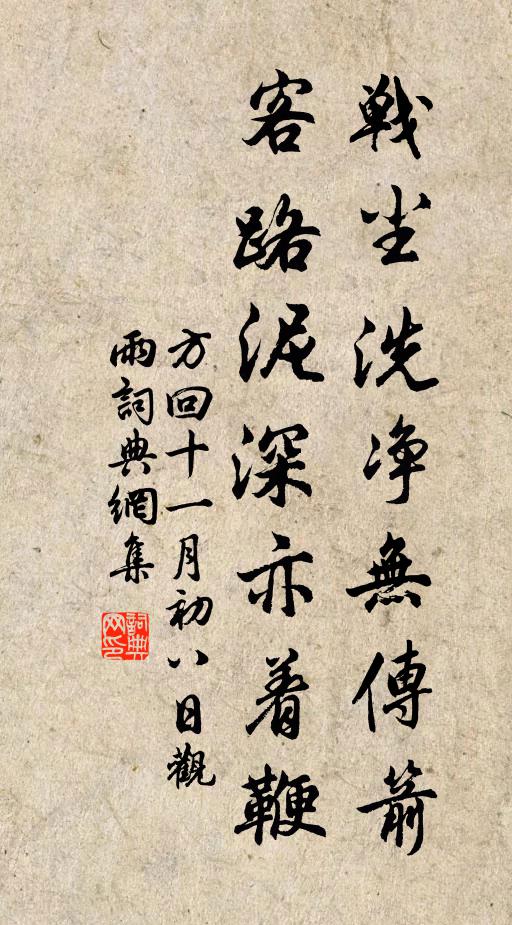 戦尘洗净無傳箭
客路泥深亦着鞭
方回十一月初八日觀
雨詞典網集
詞典网印